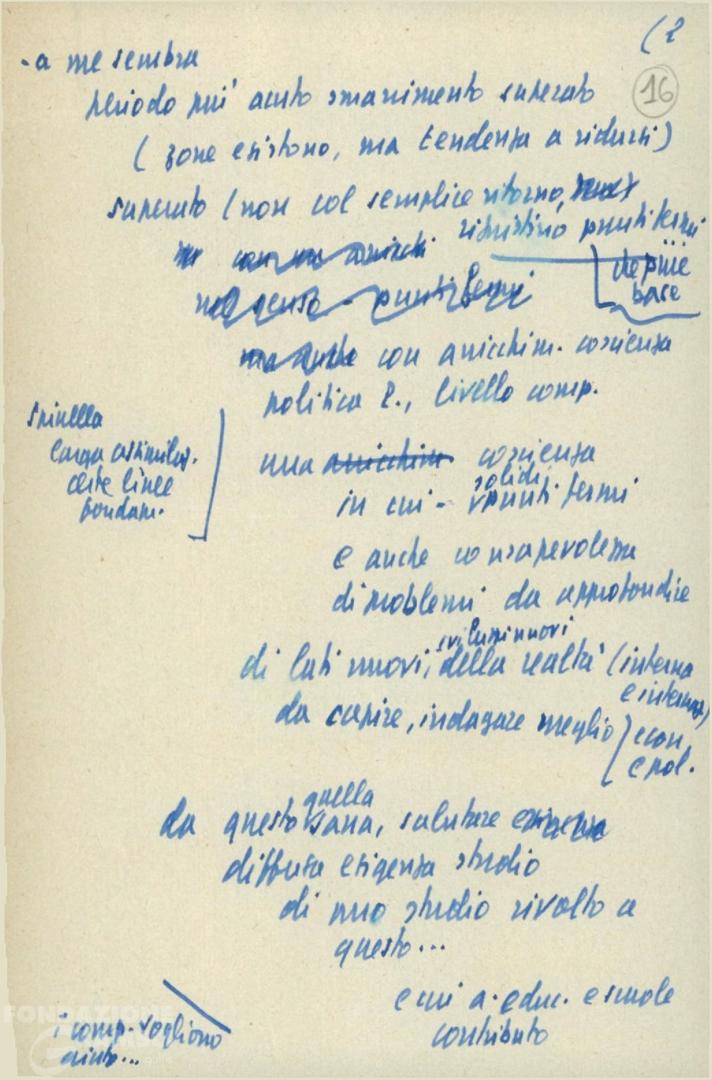 (2
16
- a me sembra
periodo più acuto smarrimento superato
(zone esistono, ma tendenza a ridursi)
superato (non col semplice ritorno,
ripristino punti fermi
che pure
base
nel senso - punti fermi
ma anche con arricchim. coscienza
politica 2., livello comp.
Spinella
larga assimilaz.
certe linee
fondam.
una arricchim coscienza
in cui - solidi punti fermi
e anche consapevolezza
di problemi da approfondire
di lati nuovi, sviluppi nuovi della realtà (interna
e internaz)
da capire, indagare meglio
econ.
e pol.
da questo quella sana, salutare
diffusa esigenza studio
di uno studio rivolto a
questo...
e cui a. educ. e scuole
contributo
i comp. vogliono
aiuto...
FONDAZIONE